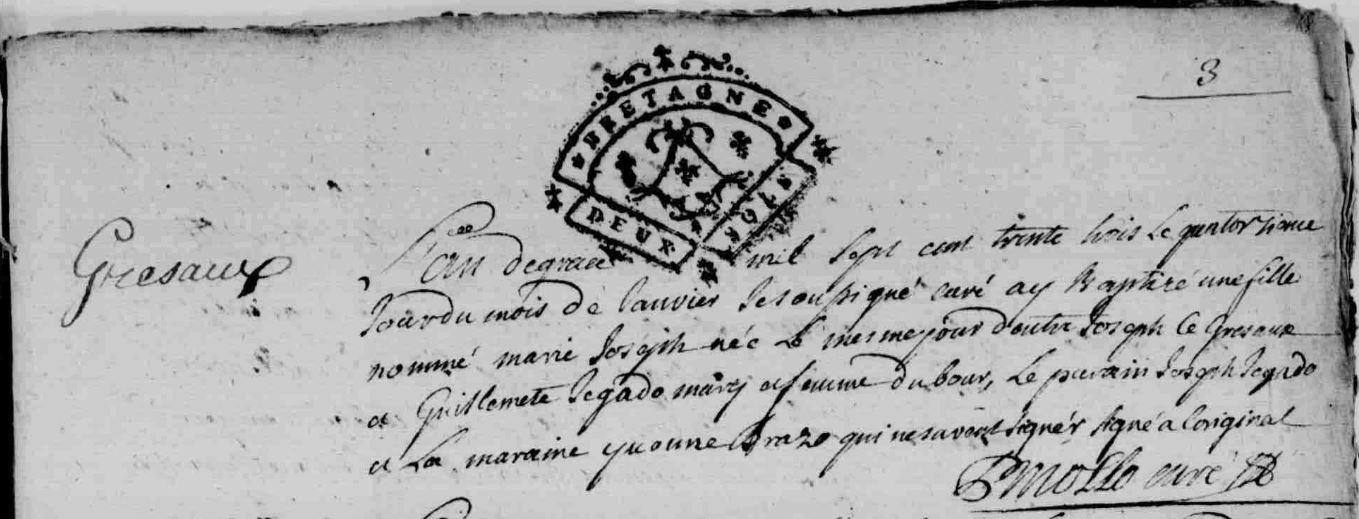 3
BRETAGNE
DEUX SOLS
Gresaux
L'an de grace mil sept cent trente trois le quatorzieme
Jour du mois de Janvier Je soussigné curé ay Baptizé une fille
nommé marie Joseph née le mesme jour d'entre Joseph le Gresaux
et Guillemete Jegado mary et femme du bour, Le parain Joseph Jegado
et La maraine yvonne Brazo qui ne savent signer signé a l'original
P mollo curé